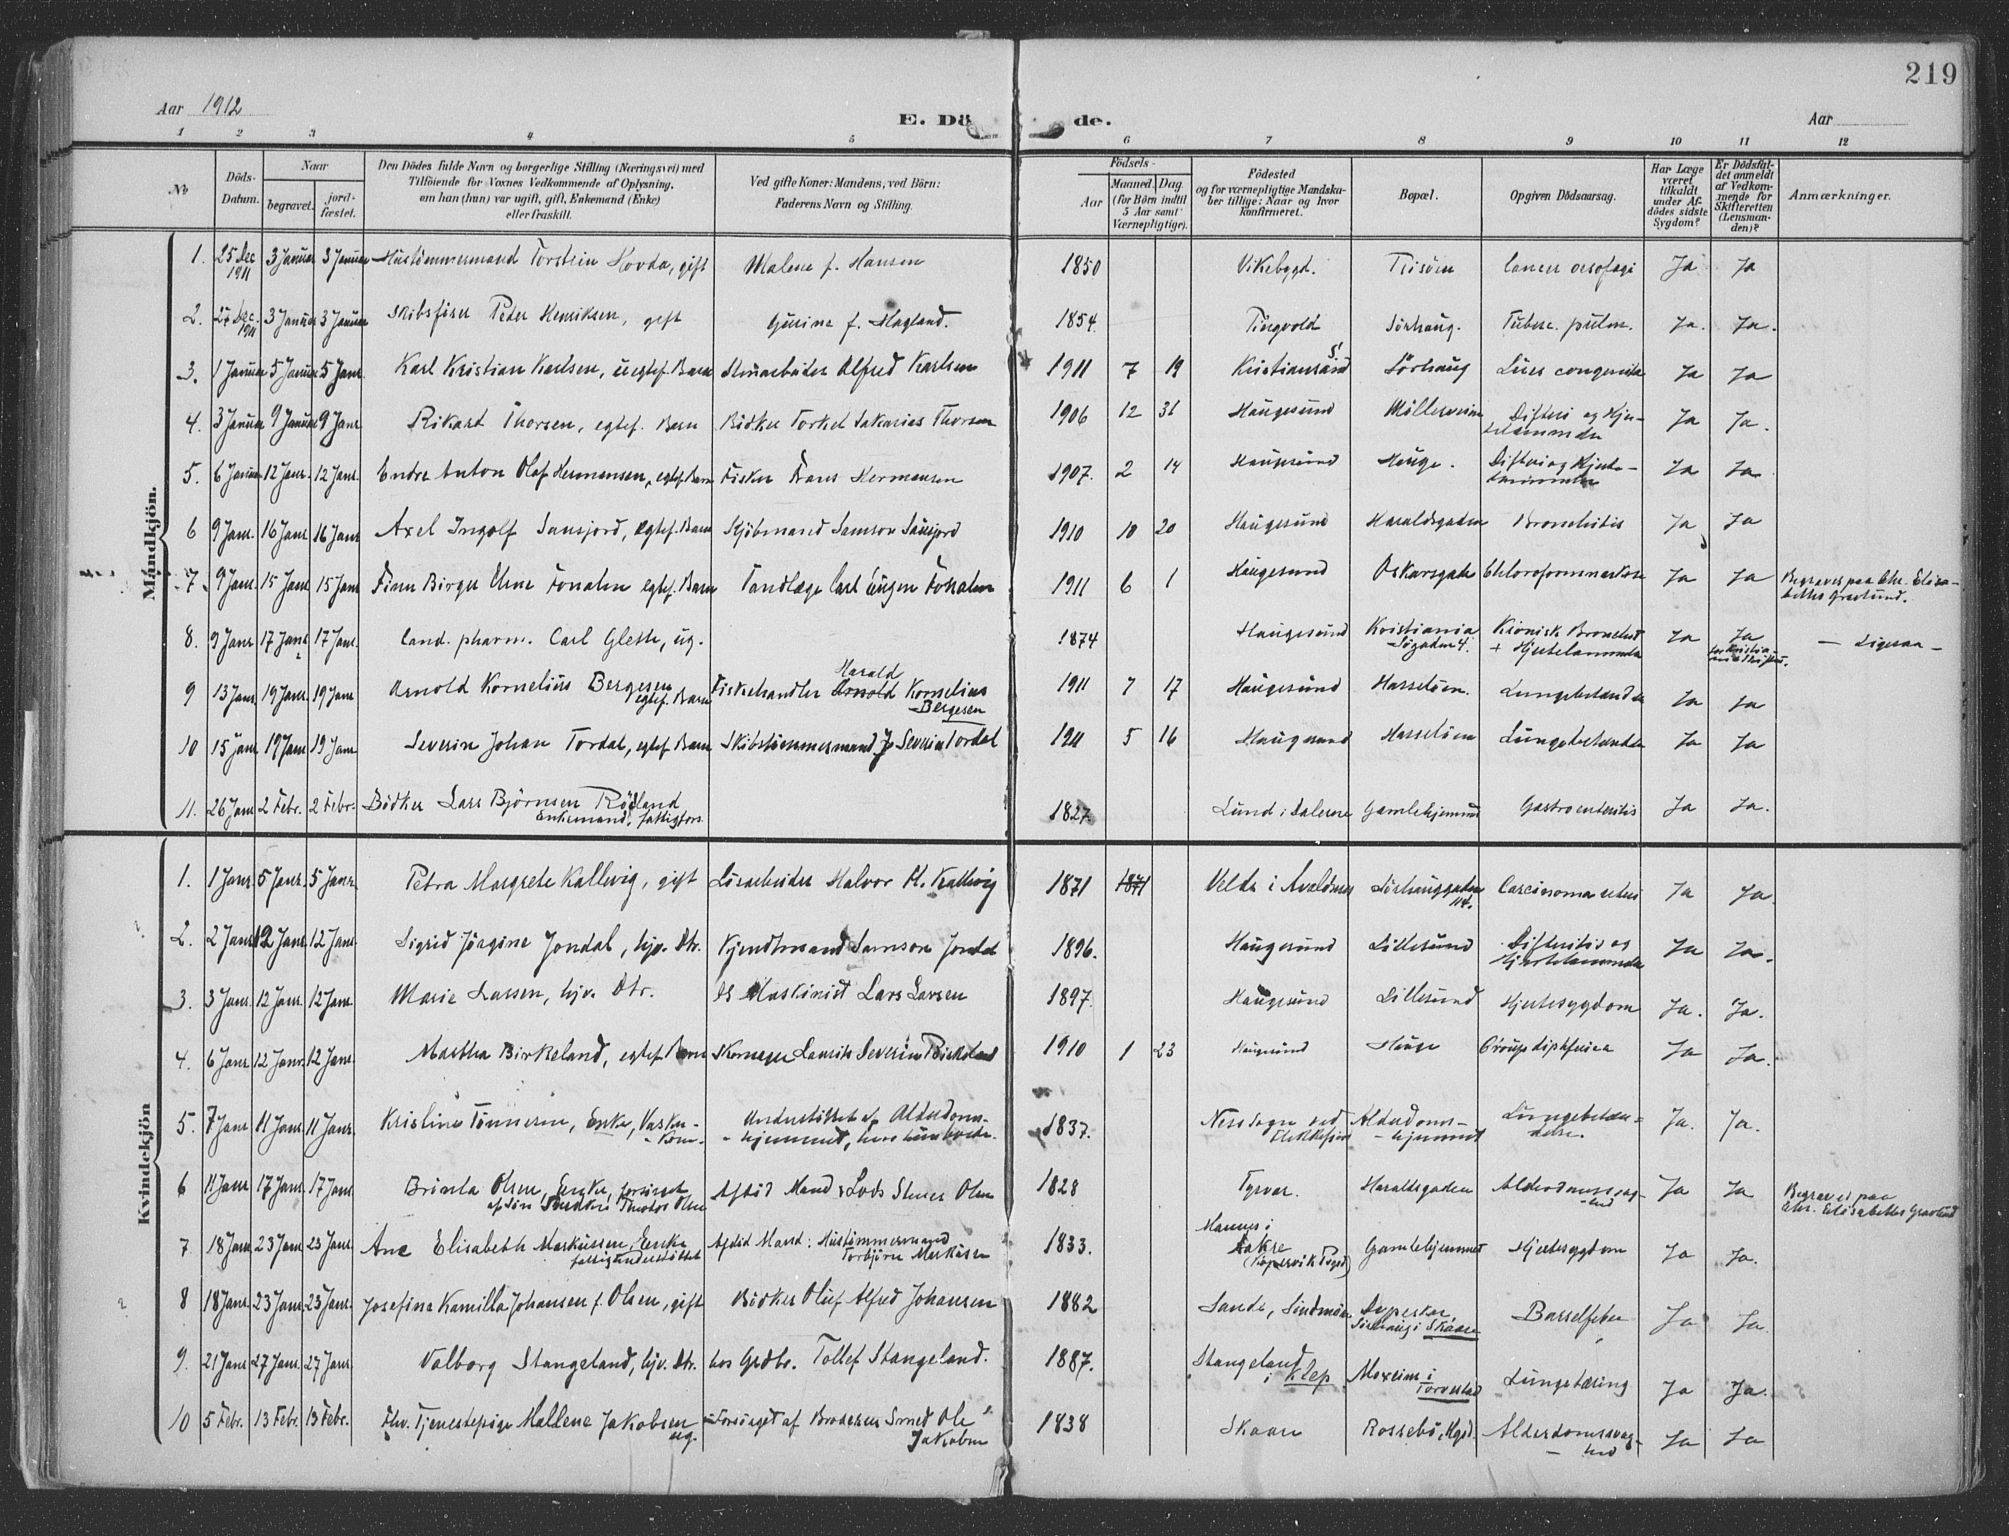 219
Aar 1912
E. Dö de.
Aar
1 2 3 4 5 6 7 8 9 10 11 12
No
Döds-Datum.
Naar
begravet.
jord-fæstet.
Den Dödes fulde Navn og borgerlige Stilling (Næringsvei) med
Tilföiende for Voxnes Vedkommende af Oplysning,
om han (hun) var ugift, gift, Enkemand (Enke)
eller fraskilt.
Ved gifte Koner: Mandens, ved Börn:
Faderens Navn og Stilling.
Födsels-
Aar
Maaned. Dag
(for Börn indtil
5 Aar samt
Værnepligtige).
Födested
og for værnepligtige Mandska-
ber tillige: Naar og hvor
konfirmeret.
Bopæl.
Opgiven Dödsaarsag.
Har Læge
været
tilkaldt
under Af-
dödes sidste
Sygdom?
Er Dödsfal-
det anmeldt
af Vedkom-
mende for
Skifteretten
(Lensman-
den)?
Anmærkninger.
Mandkjön.
1. 25 Dec 1911 3 Januar 3 Januar Hustömmermand Torstein Hovda, gift Malene f. Hansen 1850 Vikebygd. Risöen cancer oesofagi Ja Ja
2. 27 Dec. 1911 3 Januar 3 Januar Skibsförer Peder Henriksen, gift Gurine f. Hagland. 1854. Tingvold Sörhaug. Tuberc. pulm. Ja. Ja.
3. 1 Januar 5 Januar 5 Janr Karl Kristian Karlsen, uegtef. Barn Stenarbeider Alfred Karlsen 1911 7 19 Kristiansand S! Sörhaug Lues congenita Ja Ja
4. 3 Januar 9 Januar 9 Janr Rikart Thorsen, egtef. Barn Bödker Torkel Sakarias Thorsen 1906 12 31 Haugesund Mölleveien Difteri og Hjer-
telammelse Ja Ja.
5. 6 Januar 12 Janr. 12 Janr. Endre Anton Olaf Hermansen, egtef. Barn Fisker Hermansen 1907. 2 14 Haugesund Hauge. Difteri og Hjerte-
lammelse Ja Ja
6 9 Janr. 16 Janr 16 Janr Axel Ingolf Sausjord, egtef. Barn Kjöbmand Samson Sausjord 1910 10 20 Haugesund Haraldsgaden Bronchitis Ja Ja
7 9 Janr. 15 Janr 15 Janr Finn Birger Fonahn egtef. Barn Tandlæge Carl Eugen Fonahn 1911 6 1 Haugesund Oskarsgade Chloroformnarkose Ja Ja Begravet paa Chr. Elisa-
beths Gravlund.
8. 9 Janr 17 Janr 17 Janr. Cand. pharm. Carl Glette, ug. 1874 Haugesund Kristiania
Kronisk Bronchit
+ Hjertelammelse Ja Ja
— Ligesaa —
9 13 Janr. 19 Janr. 19 Janr Arnold Kornelius Bergesen
egtef. Barn Fiskehandler Harald Arnold Kornelius
Bergesen 1911 7 17 Haugesund Hasselöen. Lungebetændelse Ja Ja
10 15 Janr 19 Janr 19 Janr Severin Johan Tordal, egtef. Barn Skibstömmermand Severin Tordal 1911 5 16 Haugesund Hasselöen Lungebetændelse Ja Ja
11. 26 Janr 2 Febr. 2 Febr. Bödker Lars Björnsen Rödland
Enkemand, fattigfors. 1827. Lund i Dalerne Gamlehjemmet Gastroenteritis Ja Ja.
Kvindekjön
1. 1 Janr 5 Janr. 5 Janr Petra Margrete Kallevig, gift Lösarbeider Halvor H. Kallevig 1871 1871 Velde i Avaldsnes Sörhauggaden
114. Carcinoma uteri Ja Ja.
2. 2 Janr. 12 Janr. 12 Janr. Sigrid Jörgine Jondal, hjv. Dtr. Kjendtmand Samson Jondal 1896. Haugesund Lillesund Difteritis og
Hjertelammelse Ja Ja.
3. 3 Janr. 12 Janr 12 Janr. Marie Larsen, hjv. Dtr. Maskinist Lars Larsen 1897. Haugesund Lillesund Hjertesygdom Ja. Ja.
4. 6 Janr 12 Janr. 12 Janr. Martha Birkeland, egtef. Barn Skomager Laurits Severin Birkeland 1910 1 23 Haugesund Hauge Croup diphteria Ja Ja.
5. 7 Janr 11 Janr. 11 Janr. Kristine Tönnesen, Enke, Vasker-
kone. Understöttet af Alderdoms-
hjemmet, hvor hun boede. 1837.
Flekkefjord Alderdoms-
hjemmet Lungebetæn-
delse. Ja. Ja.
6 11 Janr 17 Janr 17 Janr Brinla Olsen, Enke, forsörget
af Sön Thodor Olsen Afdöd Mand: Lods Olsen 1828 Tysvær. Haraldsgaden Alderdomssvag-
hed Ja Ja Begravet paa
Chr. Elisabeths Gravlund
7 18 Janr 23 Janr 23 Janr. Ane Elisabeth Markussen, Enke
fattigunderstöttet Afdöd Mand: Hustömmermand
Torbjörn Markusen 1833. Mannes i
Aakre
(Kopervik Prgd) Gamlehjemmet Hjertesygdom Ja Ja.
8 18 Janr. 23 Janr 23 Janr. Josefine Kamilla Johansen f. Olsen, gift Bödker Oluf Alfred Johansen 1882 Sande, Söndmöre
Sörhaug i Skaare Barselfeber Ja Ja.
9. 21 Janr 27 Janr. 27 Janr. Valborg Stangeland, hjv. Dtr. hos Grdbr. Tollef Stangeland. 1887. Stangeland
i Klep
Torvestad Lungetæring Ja Ja.
10 5 Febr. 13 Febr. 13 Febr. Fhv. Tjenestepige Mallene Jakobsen
ug. Forsörget af Broderen Smed Ole
Jakobsen 1838 Skaare Rossebö, Hgsd. Alderdomssvag-
hed Ja Ja